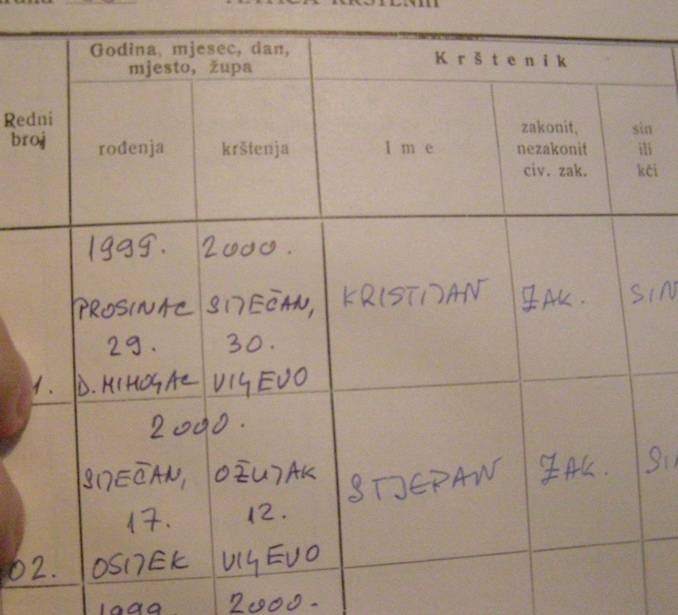 MATICA KRŠTENIH
Godina, mjesec, dan,
mjesto, župa
Krštenik
Redni
broj
rođenja
krštenja
Ime
zakonit,
nezakonit
civ. zak.
sin
ili
kći
1999. 2000.
PROSINAC SIJEČAN,
KRISTIJAN ZAK. SIN
29. 30.
1. D. MIHOLJAC VILJEVO
2000.
SIJEČAN, OŽUJAK
STJEPAN ZAK.
17. 12.
02. OSIJEK VILJEVO
1999. 2000.